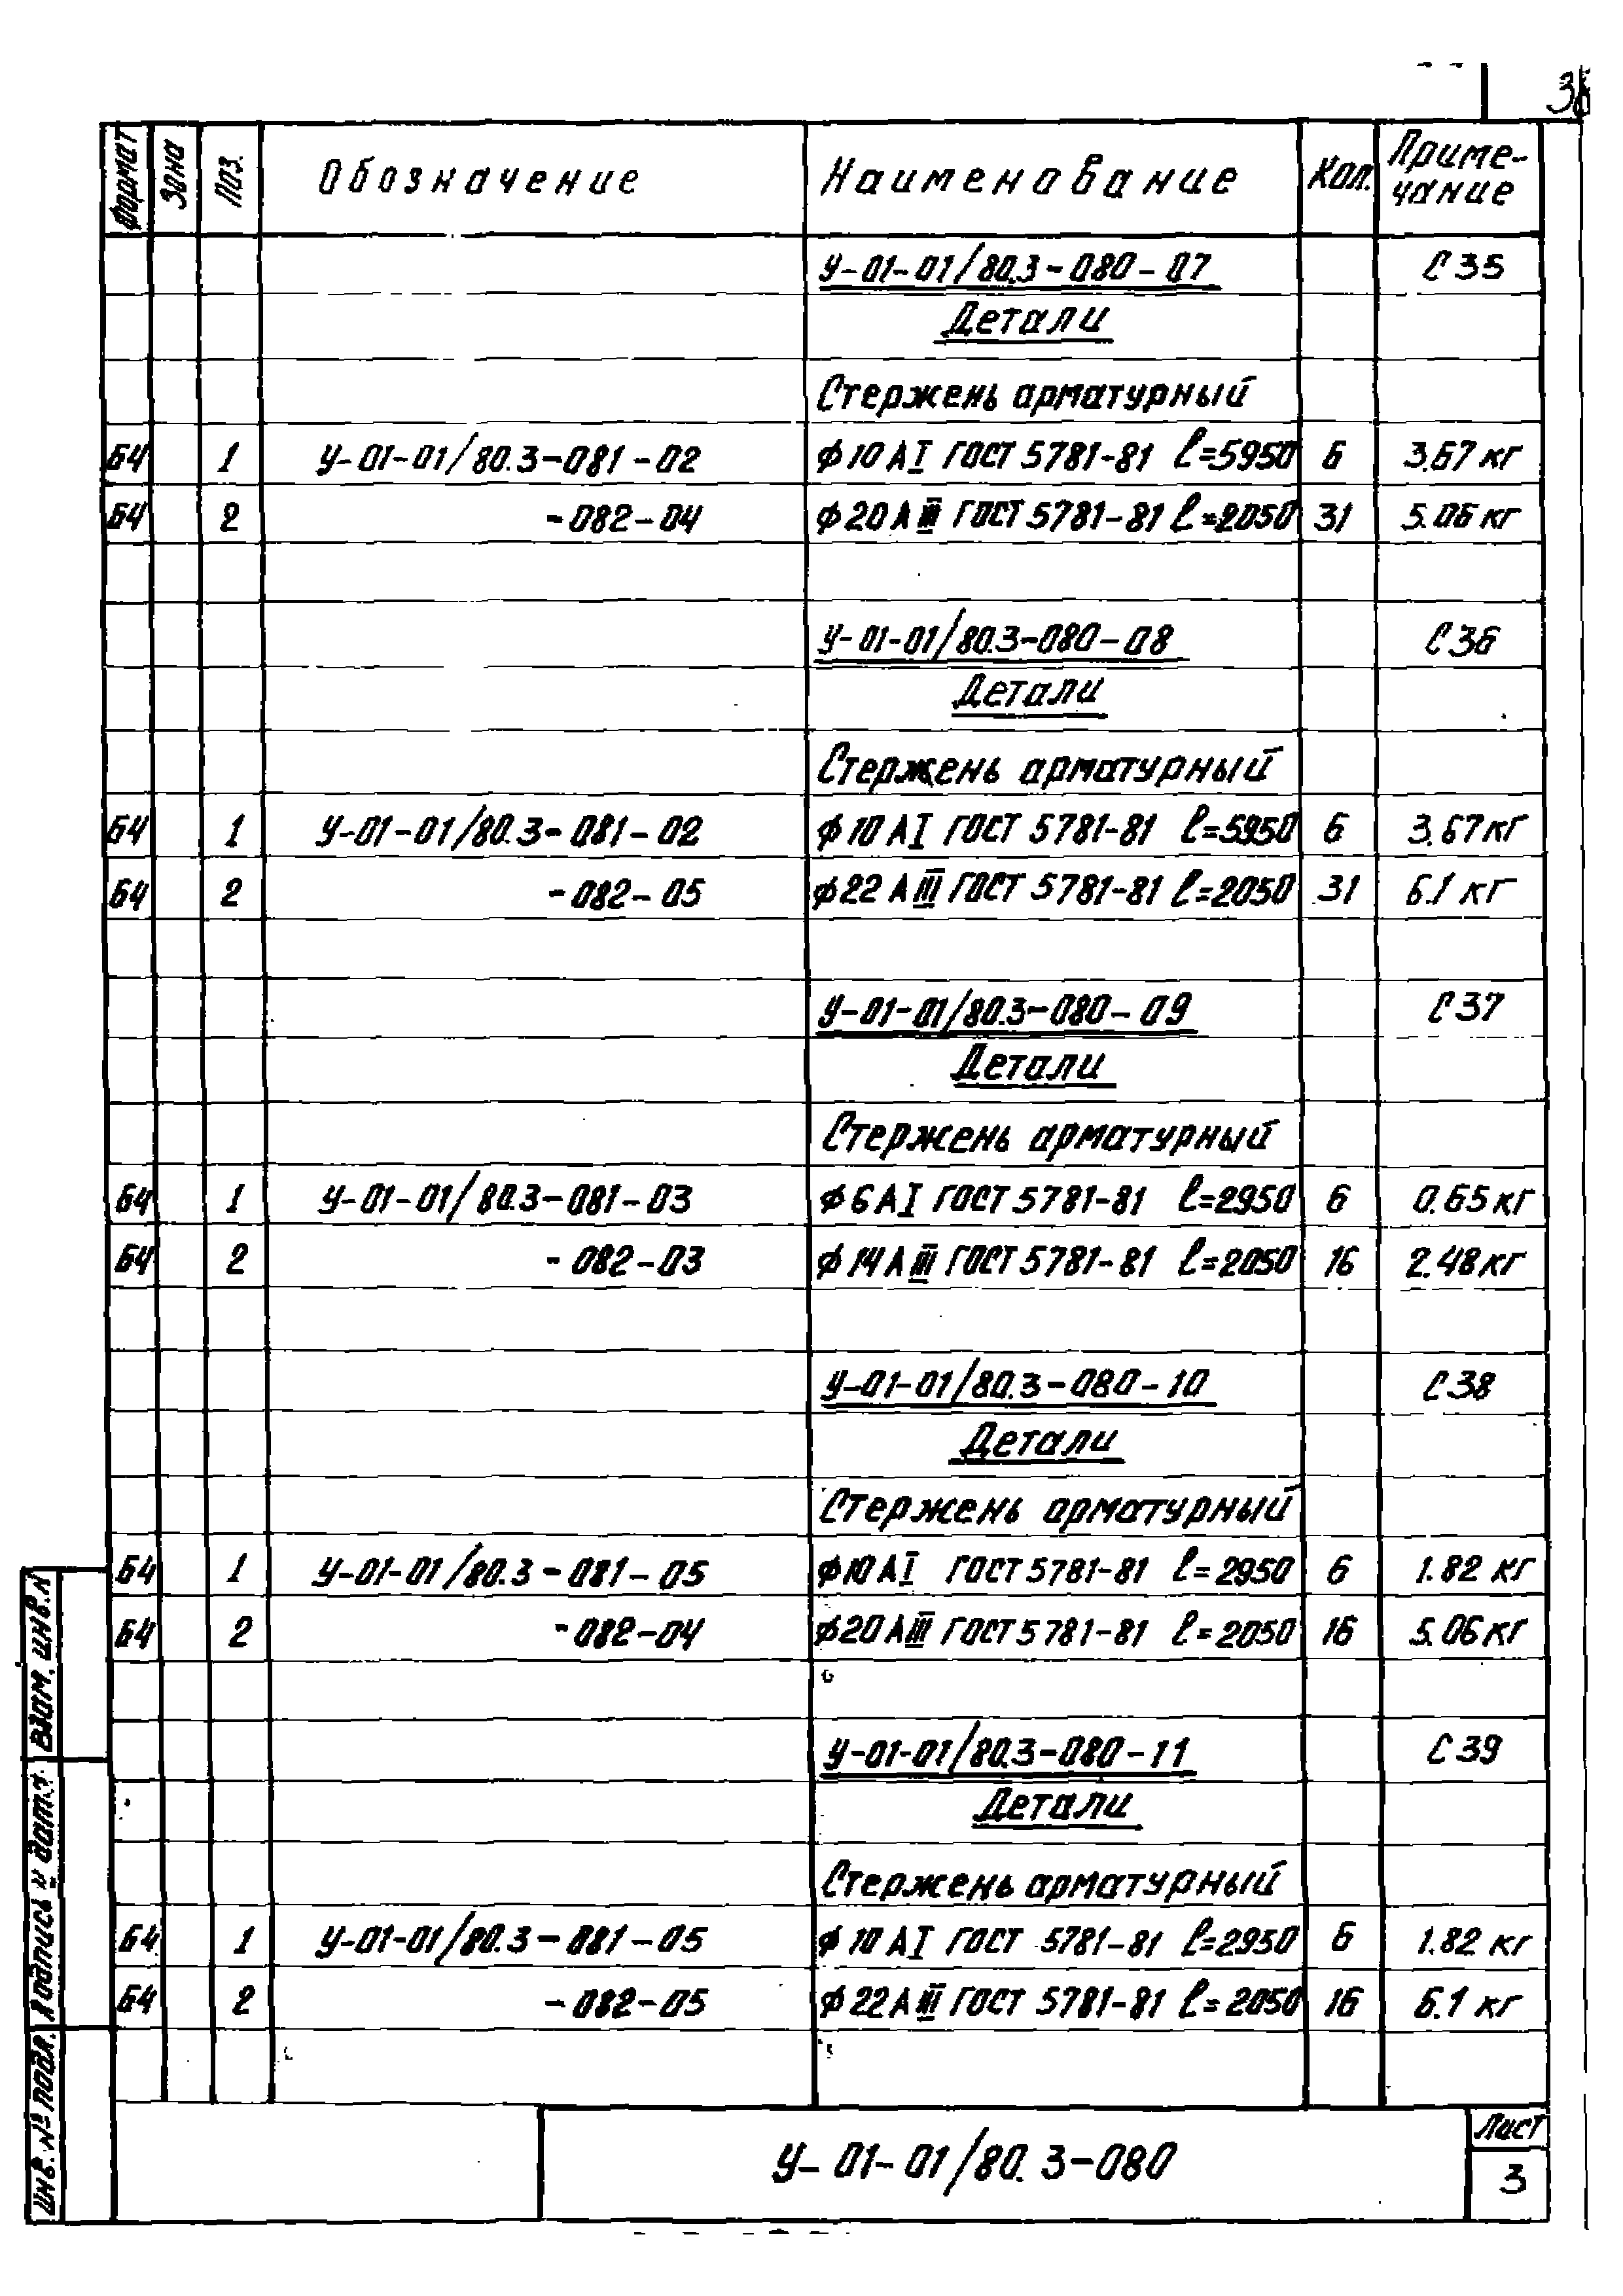 Формат Зона Поз. Обозначение Наименование Кол. Приме-
чание
У-01-01/80.3-080-07 С35
Детали
Стержень арматурный
Б4 1 У-01-01/80.3-081-02 ϕ10 АI ГОСТ 5781-81 ℓ=5950 6 3.67 кг
Б4 2 -082-04 ϕ20 АIII ГОСТ 5781-81 ℓ=2050 31 5.06 кг
У-01-01/80.3-080-08 С36
Детали
Стержень арматурный
Б4 1 У-01-01/80.3-081-02 ϕ10 АI ГОСТ 5781-81 ℓ=5950 6 3.67 кг
Б4 2 -082-05 ϕ22 АIII ГОСТ 5781-81 ℓ=2050 31 6.1 кг
У-01-01/80.3-080-09 С37
Детали
Стержень арматурный
Б4 1 У-01-01/80.3-081-03 ϕ6 АI ГОСТ 5781-81 ℓ=2950 6 0.65 кг
Б4 2 -082-03 ϕ14 АIII ГОСТ 5781-81 ℓ=2050 16 2.48 кг
У-01-01/80.3-080-10 С38
Детали
Стержень арматурный
Б4 1 У-01-01/80.3-081-05 ϕ10 АI ГОСТ 5781-81 ℓ=2950 6 1.82 кг
Б4 2 -082-04 ϕ20 АIII ГОСТ 5781-81 ℓ=2050 16 5.06 кг
У-01-01/80.3-080-11 С39
Детали
Стержень арматурный
Б4 1 У-01-01/80.3-081-05 ϕ10 АI ГОСТ 5781-81 ℓ=2950 6 1.82 кг
Б4 2 -082-05 ϕ22 АIII ГОСТ 5781-81 ℓ=2050 16 6.1 кг
Взам. инв.N
Подпись и дата
Инв. № подл.
У-01-01/80.3-080
Лист
3